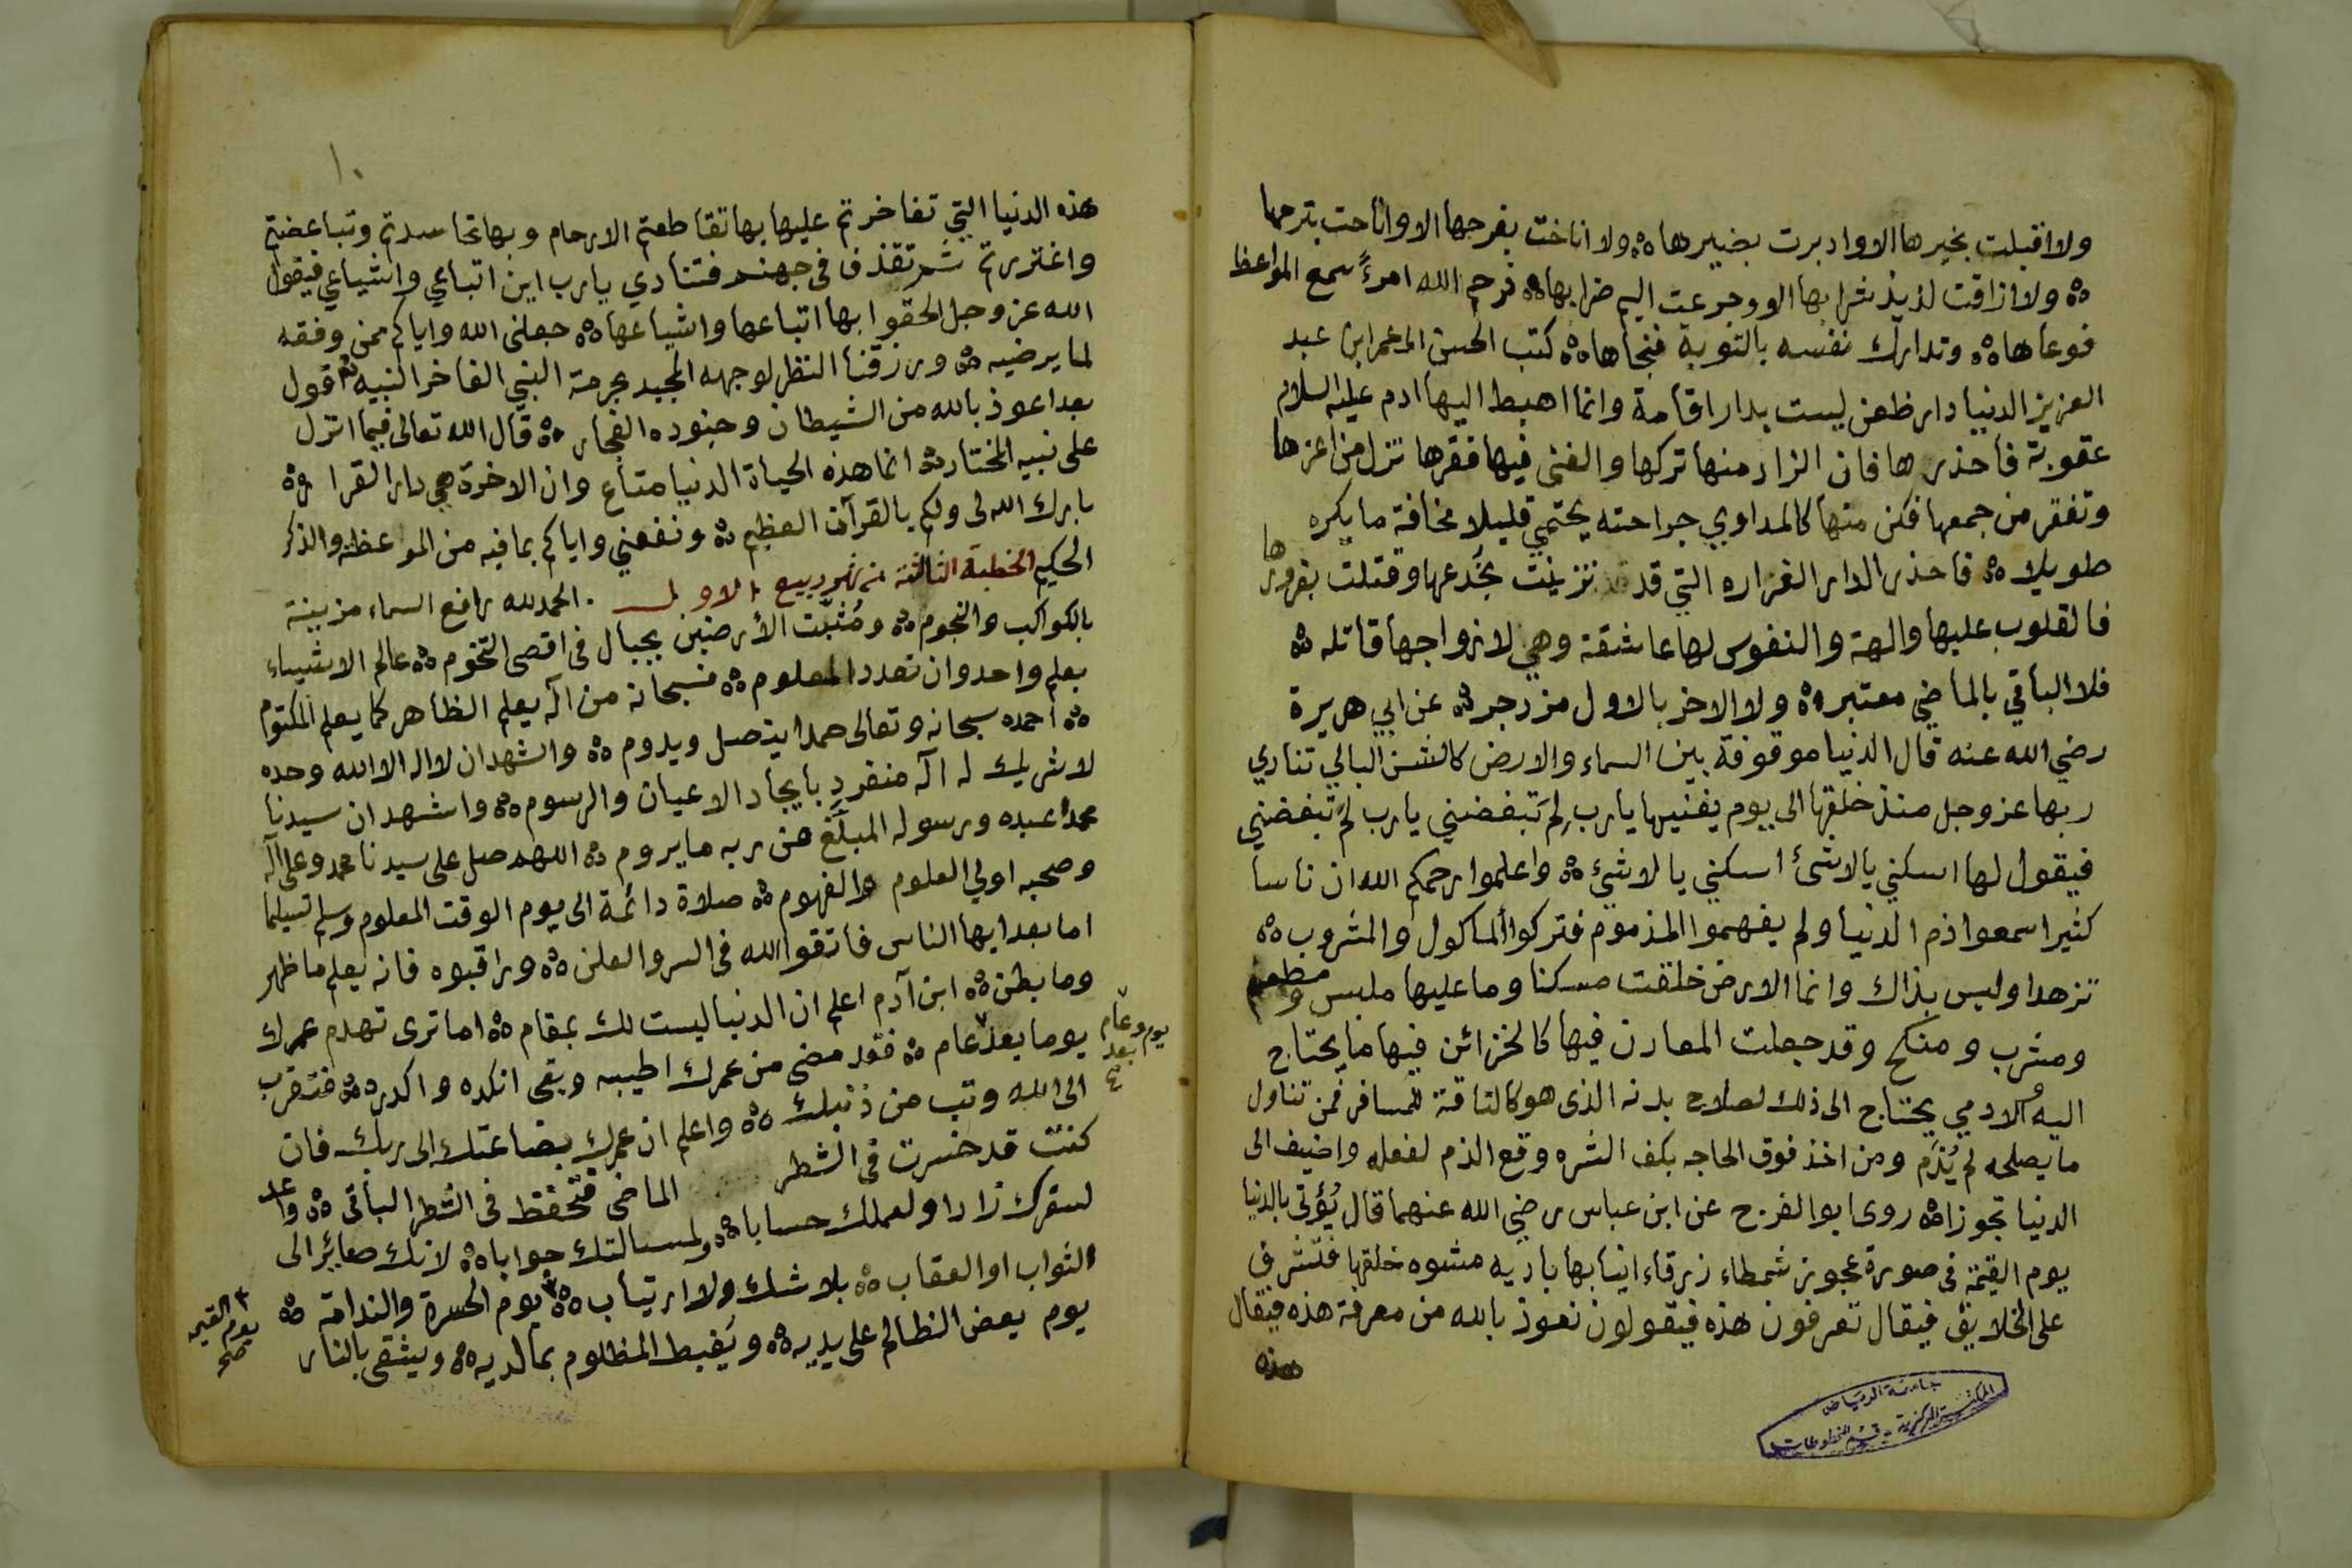 ولا اقبلت بخيرها الا وادبرت بضيرها ه ولا اناخت بفرحها الا واناحت بترحها
ه ولا اذاقت لذيذ شرابها الا وجرعت اليم ضرابها ه فرحم الله امرءً سمع المواعظ
فوعاها ه وتدارك نفسه بالتوبة فنجاها ه كتب الحسن الى عمر ابن عبد
العزيز الدنيا دار ظعن ليست بدار اقامة وانما اهبط اليها ادم عليه السلام
عقوبة فاحذرها فان الزاد منها تركها والغنى فيها فقرها تزل من اعزها
وتفقر من جمعها فكن منها كالمداوي جراحته يحتمي قليلا مخافة ما يكره
طويلا ه فاحذر الدار الغراره التي قد تزينت بخدعها وقتلت بغرورها
فالقلوب عليها والهة والنفوس لها عاشقة وهي لازواجها قاتله ه
فلا الباقي بالماضي معتبر ه ولا الاخر بالاول مزدجر ه عن ابي هريرة
رضي الله عنه قال الدنيا موقوفة بين السماء والارض كالشن البالي تنادي
ربها عز وجل منذ خلقها الى يوم يفنيها يارب لم تبغضني يارب لم تبغضني
فيقول لها اسكني يا لاشئ اسكني يا لاشئ ه واعلموا رحمكم الله ان ناسا
كثيرا سمعوا ذم الدنيا ولم يفهموا المذموم فتركوا المأكول والمشروب ه
تزهدا وليس بذاك وانما الارض خلقت مسكنا وما عليها ملبس ومطعم
ومشرب ومنكح وقد جعلت المعادن فيها كالخزائن فيها ما يحتاج
اليه والادمي يحتاج الى ذلك لصلاح بدنه الذى هو كالناقة للمسافر فمن تناول
ما يصلحه لم يُذَم ومن اخذ فوق الحاجه بكف الشره وقع الذم لفعله واضيف الى
الدنيا تجوزا ه روى ابو الفرج عن ابن عباس رضي الله عنهما قال يُؤتى بالدنيا
يوم القيمة فى صورة عجوز شمطاء زرقاء انيابها باديه مشوه خلقها فتشرف
على الخلايق فيقال تعرفون هذه فيقولون نعوذ بالله من معرفة هذه فيقال
هذه
جامعة الرياض
المكتبة المركزية - قسم المخطوطات
١٠
هذه الدنيا التي تفاخرتم عليها بها تقاطعتم الارحام وبها تحاسدتم وتباغضتم
واغتررتم ثم تقذف فى جهنم فتنادي يارب اين اتباعي واشياعي فيقول
الله عز وجل الحقوا بها اتباعها واشياعها ه جعلنى الله واياكم ممن وفقه
لما يرضيه ه ورزقنا النظر لوجهه المجيد بحرمة النبي الفاخر النبيه ثم اقول
بعد اعوذ بالله من الشيطان وجنوده الفجار ه قال الله تعالى فيما انزل
على نبيه المختار ه انما هذه الحياة الدنيا متاع وان الاخرة هي دار القرار ه
بارك الله لى ولكم بالقرآن العظيم ه ونفعني واياكم بما فيه من المواعظ والذكر
الحكيم الخطبة الثالثة من شهر ربيع الاول . الحمد لله رافع السماء مزينة
بالكواكب والنجوم ه ومُثبِّت الأرضين بجبال فى اقصى التخوم ه عالم الاشياء
بعلم واحد وان تعدد المعلوم ه فسبحانه من اله يعلم الظاهر كما يعلم المكتوم
ه احمده سبحانه وتعالى حمدا يتصل ويدوم ه واشهد ان لا اله الا الله وحده
لا شريك له اله منفرد بايجاد الاعيان والرسوم ه واشهد ان سيدنا
محمدا عبده ورسوله المبلّغ عن ربه ما يروم ه اللهم صل على سيدنا محمد وعلى آله
وصحبه اولي العلوم والفهوم ه صلاة دائمة الى يوم الوقت المعلوم وسلم تسليما
اما بعد ايها الناس فاتقوا الله فى السر والعلن ه وراقبوه فانه يعلم ما ظهر
وما بطن ه ابن آدم اعلم ان الدنيا ليست لك بمقام ه اما ترى تهدم عمرك
يوما بعد عام ه فقد مضى من عمرك اطيبه وبقى انكده واكدره ه فتقرب
يوم وعام بعد
الى الله وتب من ذنبك ه واعلم ان عمرك بضاعتك الى ربك فان
كنت قد خسرت فى الشطر الماضى فتحفظ فى الشطر الباقى ه واعد
لسفرك زادا ولعملك حسابا ه ولمسالتك جوابا ه لانك صائر الى
الثواب او العقاب ه بلا شك ولا ارتياب ه يوم الحسرة والندامة ه
يوم القيمه صح
يوم يعض الظالم على يديه ه ويغبط المظلوم بما لديه ه ويشقى بالنار